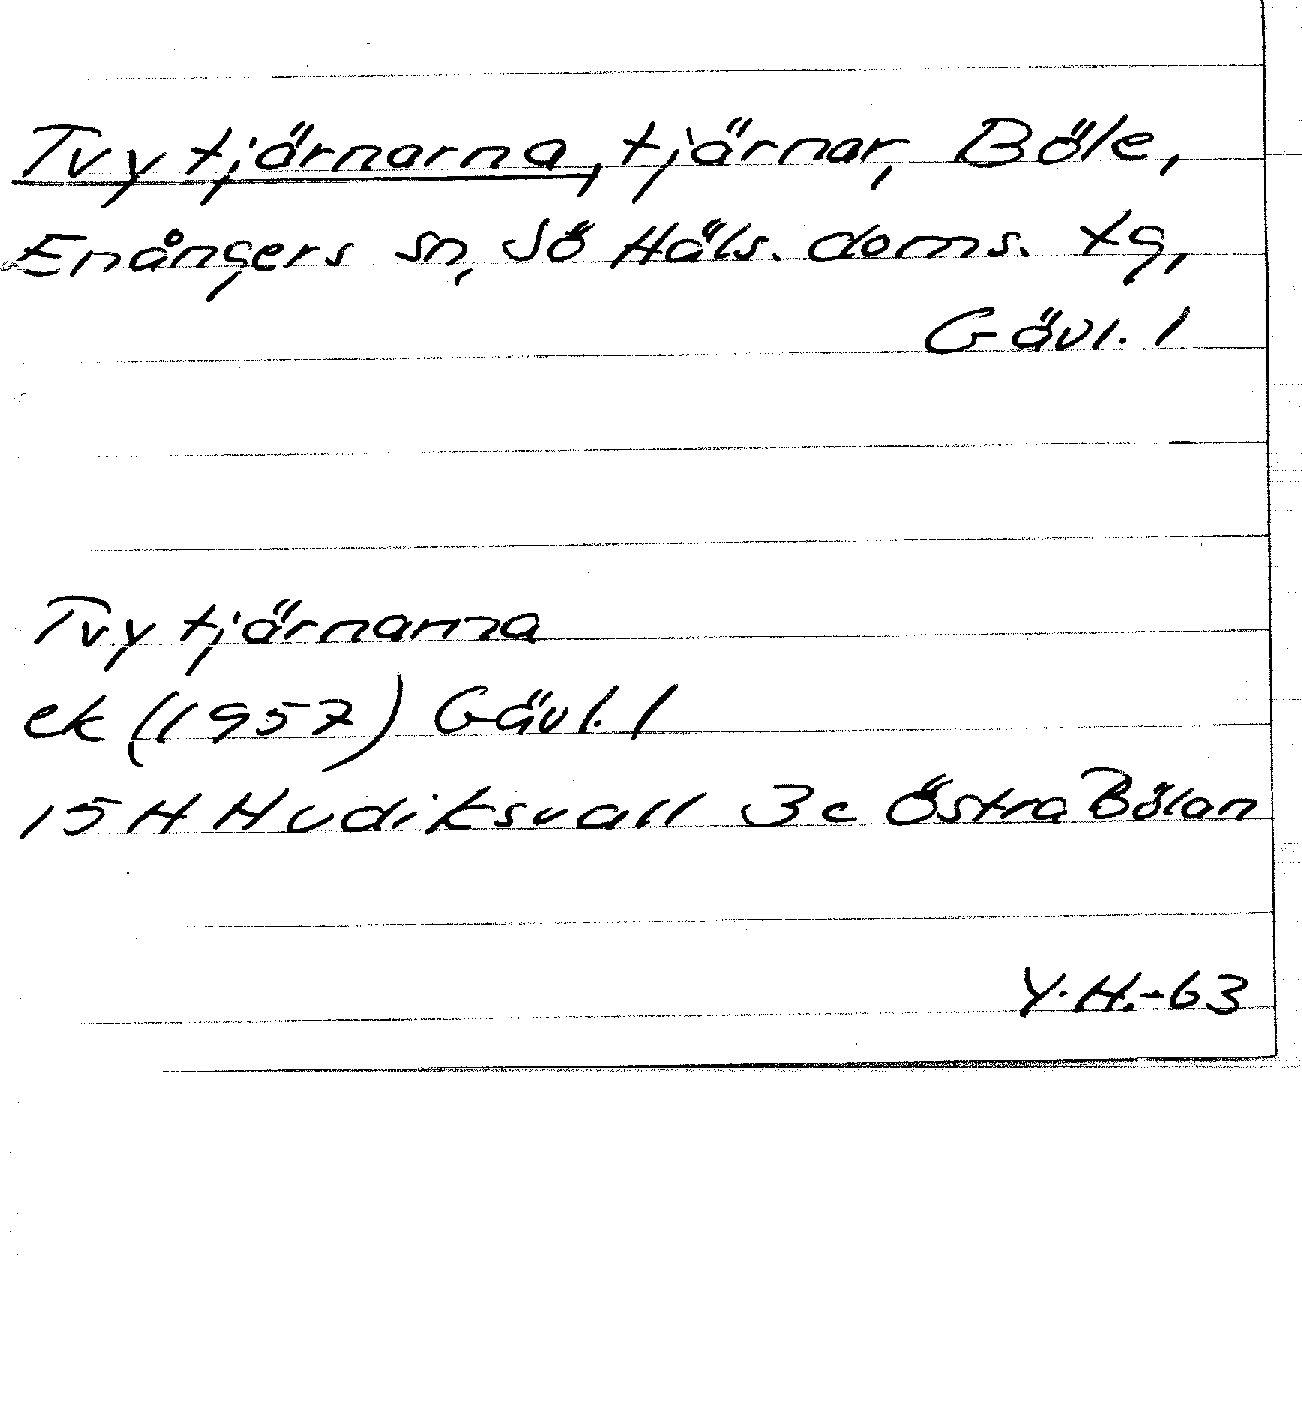 Tvytjärnarna, tjärnar, Böle,
Enångers sn, Sö Häls. doms. tg,
Gävl. l
Tvytjärnarna
ek (1957) Gävl. l
15H Hudiksvall 3c Östra Bölan
Y.H.-63